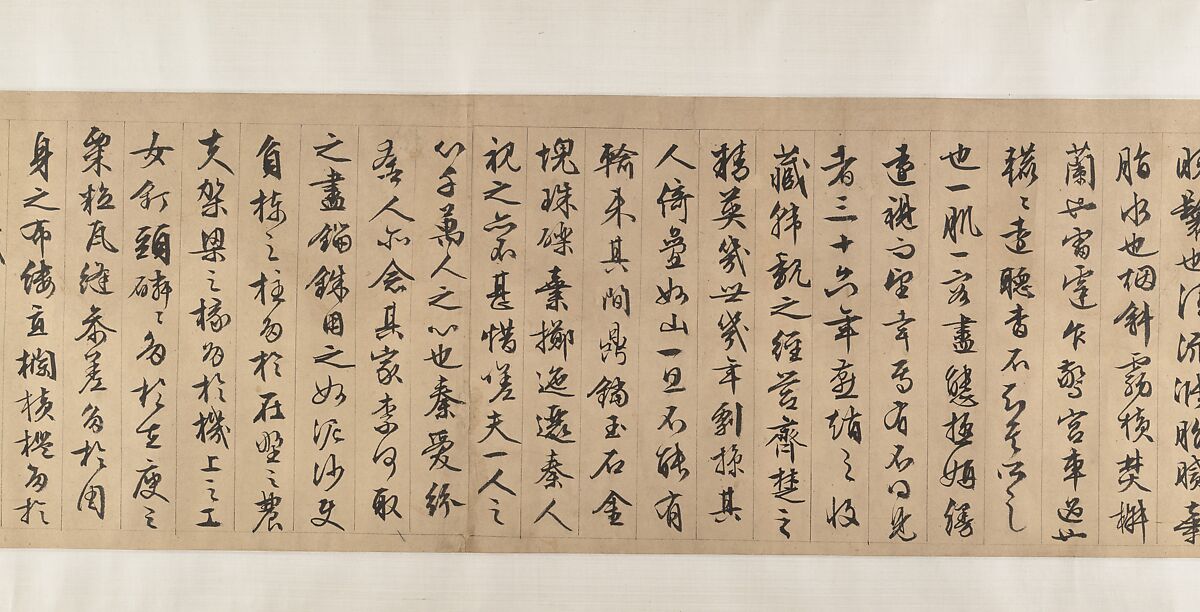 鬟也渭流漲膩棄
脂水也烟斜霧橫焚椒
蘭也雷霆乍驚宮車過也
轆〻遠聽杳不知其所之
也一肌一容盡態極妍縵
遠視而望幸焉有不得見
者三十六年燕趙之收
藏韓魏之經營齊楚之
精英幾世幾年剽掠其
人倚疊如山一旦不能有
輸來其間鼎鐺玉石金
塊珠礫棄擲迤邐秦人
視之亦不甚惜嗟夫一人之
心千萬人之心也秦愛紛
奢人亦念其家柰何取
之盡錙銖用之如泥沙使
負棟之柱多於在野之農
夫架梁之椽多於機上之工
女釘頭磷〻多於在庾之
粟粒瓦縫參差多於周
身之布縷直欄橫檻多於